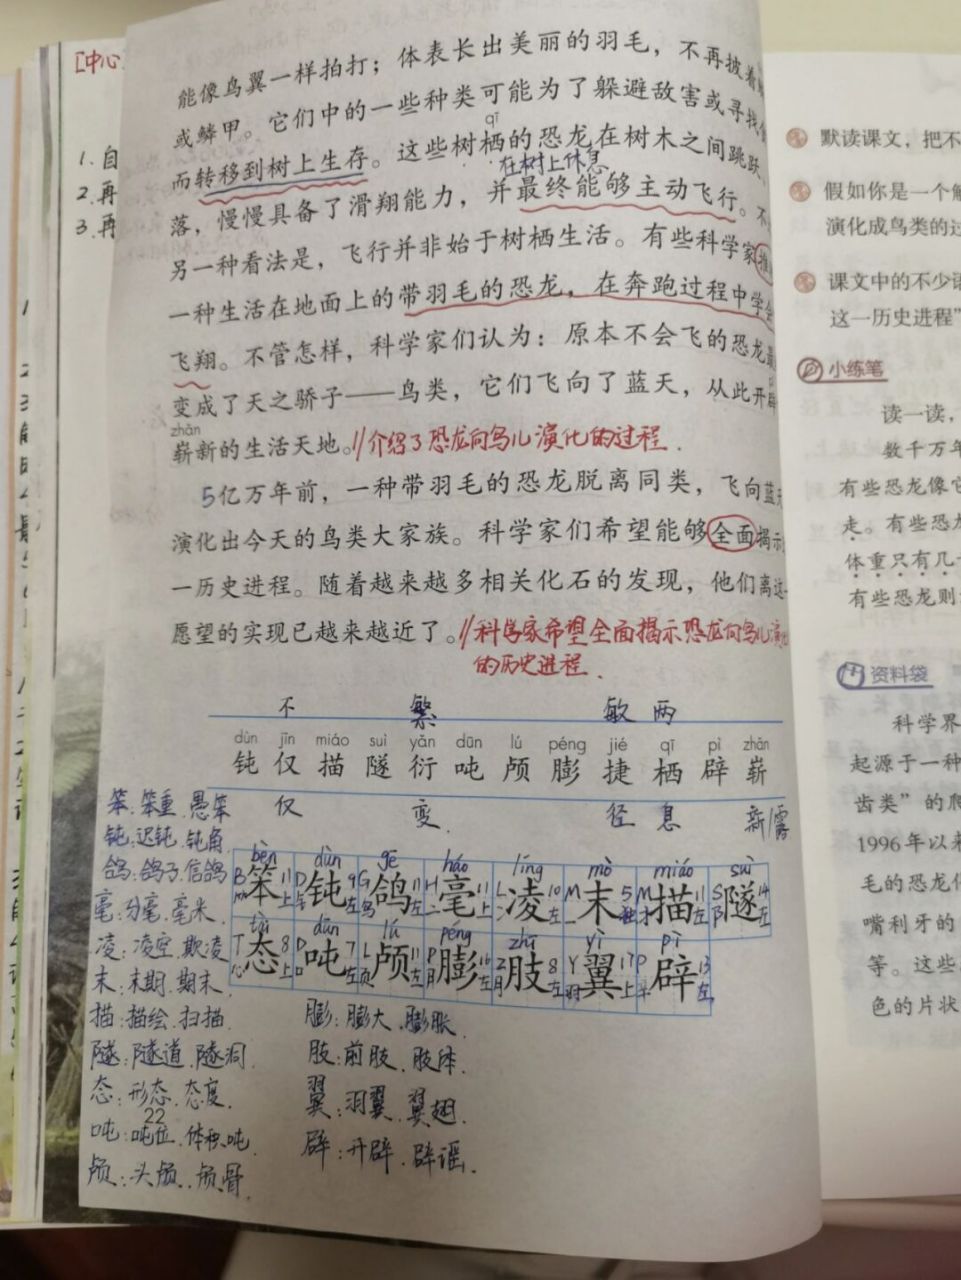 [中心
1.自
2.再
3.再
能像鸟翼一样拍打；体表长出美丽的羽毛，不再披着
或鳞甲。它们中的一些种类可能为了躲避敌害或寻找
qī
而转移到树上生存。这些树栖的恐龙在树木之间跳跃、
在树上休息
落，慢慢具备了滑翔能力，并最终能够主动飞行。不
另一种看法是，飞行并非始于树栖生活。有些科学家推
一种生活在地面上的带羽毛的恐龙，在奔跑过程中学会
飞翔。不管怎样，科学家们认为：原本不会飞的恐龙最
变成了天之骄子——鸟类，它们飞向了蓝天，从此开辟
zhǎn
崭新的生活天地。//介绍了恐龙向鸟儿演化的过程.
5亿万年前，一种带羽毛的恐龙脱离同类，飞向蓝天
演化出今天的鸟类大家族。科学家们希望能够全面揭示
一历史进程。随着越来越多相关化石的发现，他们离这
愿望的实现已越来越近了。//科学家希望全面揭示恐龙向鸟儿演化
的历史进程.
不 繁 敏 两
dùn jǐn miáo suì yǎn dūn lú péng jié qī pì zhǎn
钝 仅 描 隧 衍 吨 颅 膨 捷 栖 辟 崭
仅 变 径 息 新
笨:笨重.愚笨
钝:迟钝.钝角
鸽:鸽子.信鸽
毫:分毫.毫米
凌:凌空.欺凌
末:末期.期末
描:描绘.扫描
隧:隧道.隧洞
态:形态.态度
吨:吨位.体积吨
颅:头颅.颅骨
bèn dùn gē háo líng mò miáo suì
笨 钝 鸽 毫 凌 末 描 隧
tài dūn lú péng zhī yì pì
态 吨 颅 膨 肢 翼 辟
膨:膨大.膨胀
肢:前肢.肢体
翼:羽翼.翼翅
辟:开辟.辟谣
22
默读课文，把不
假如你是一个解
演化成鸟类的过
课文中的不少语
这一历史进程”
小练笔
读一读，
数千万年
有些恐龙像它
走。有些恐龙
体重只有几十
有些恐龙则
资料袋
科学界
起源于一种
齿类”的爬
1996年以来
毛的恐龙化
嘴利牙的
等。这些
色的片状